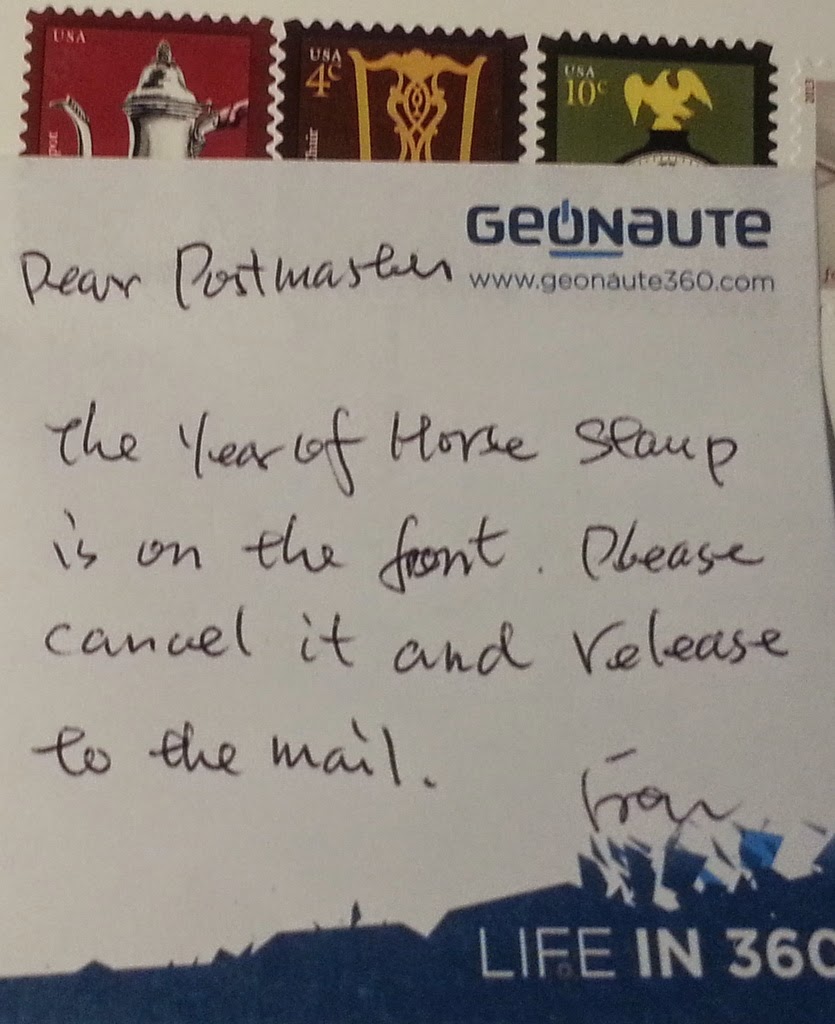 USA
USA
4c
USA
10c
2013
GEONAUTE
www.geonaute360.com
Dear Postmaster
The Year of Horse Stamp
is on the front. Please
cancel it and release
to the mail.
LIFE IN 360